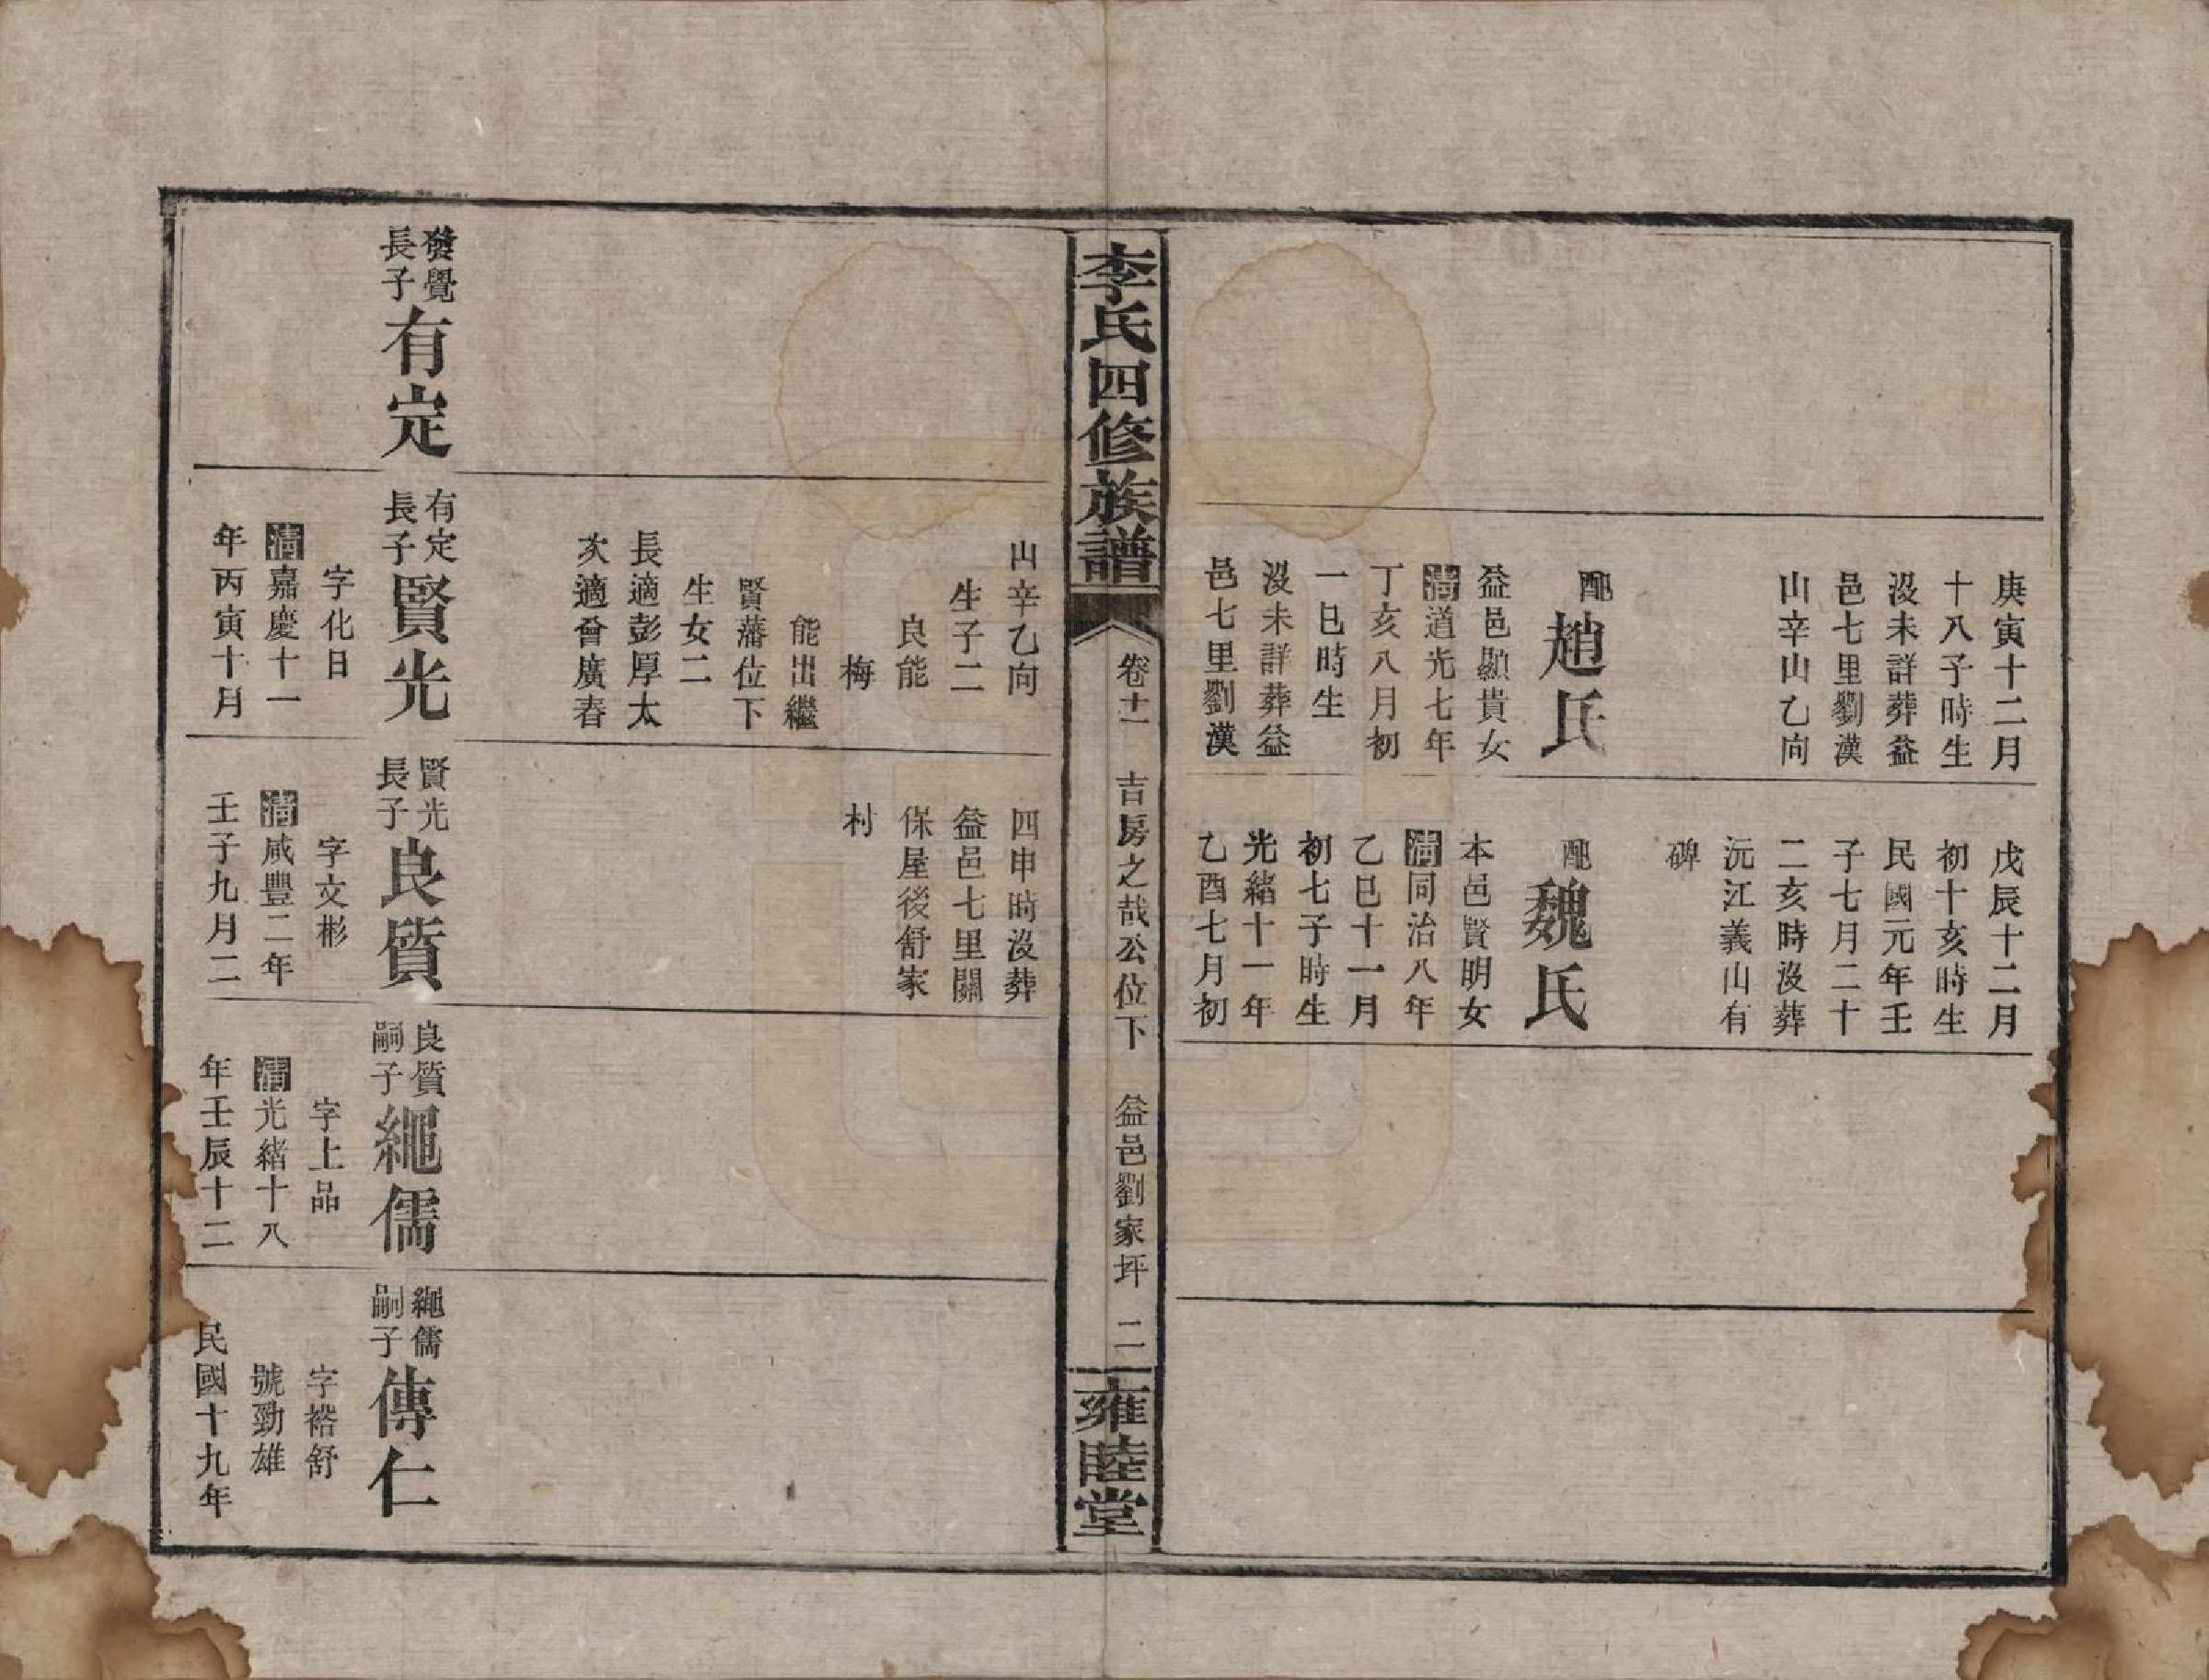 庚寅十二月
十八子時生
沒未詳葬益
邑七里劉漢
山辛山乙向
配趙氏
益邑顯貴女
清道光七年
丁亥八月初
一巳時生
沒未詳葬益
邑七里劉漢
戊辰十二月
初十亥時生
民國元年壬
子七月二十
二亥時沒葬
沅江義山有
碑
配魏氏
本邑賢明女
清同治八年
乙巳十一月
初七子時生
光緒十一年
乙酉七月初
李氏四修族譜
卷十一
吉房之哉公位下
益邑劉家坪
二
雍睦堂
發覺
長子
有定
山辛乙向
生子二
良能
梅
能出繼
賢藩位下
生女二
長適彭厚太
次適曾廣春
有定
長子
賢光
字化日
清嘉慶十一
年丙寅十月
四申時沒葬
益邑七里關
保屋後舒家
村
賢光
長子
良質
字文彬
清咸豐二年
壬子九月二
良質
嗣子
繩儒
字上品
清光緒十八
年壬辰十二
繩儒
嗣子
傳仁
字裕舒
號勁雄
民國十九年